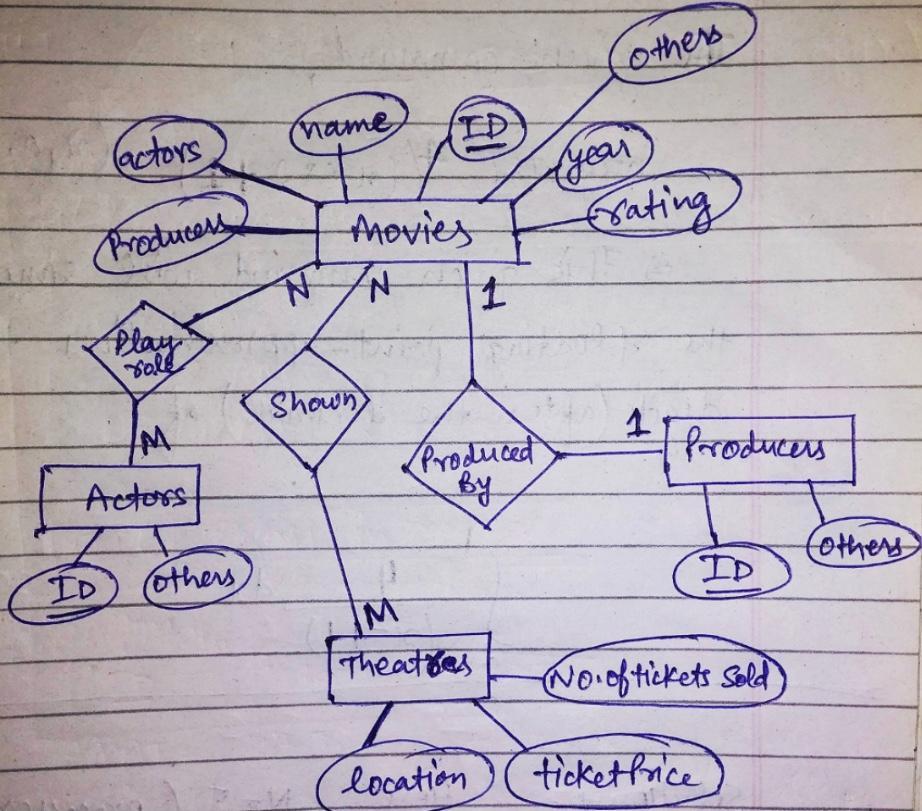 others
name
ID
actors
year
rating
Producers
Movies
N
N
1
Play
role
Shown
1
Produced
By
Producers
M
Actors
ID
others
ID
others
M
Theatres
No. of tickets Sold
location
ticketPrice